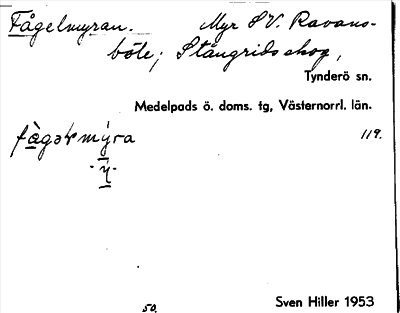 Fågelmyran. Myr S V. Ravans-
böle; Stångrids skog,
Tynderö sn.
Medelpads ö. doms. tg, Västernorrl. län.
119.
50.
Sven Hiller 1953